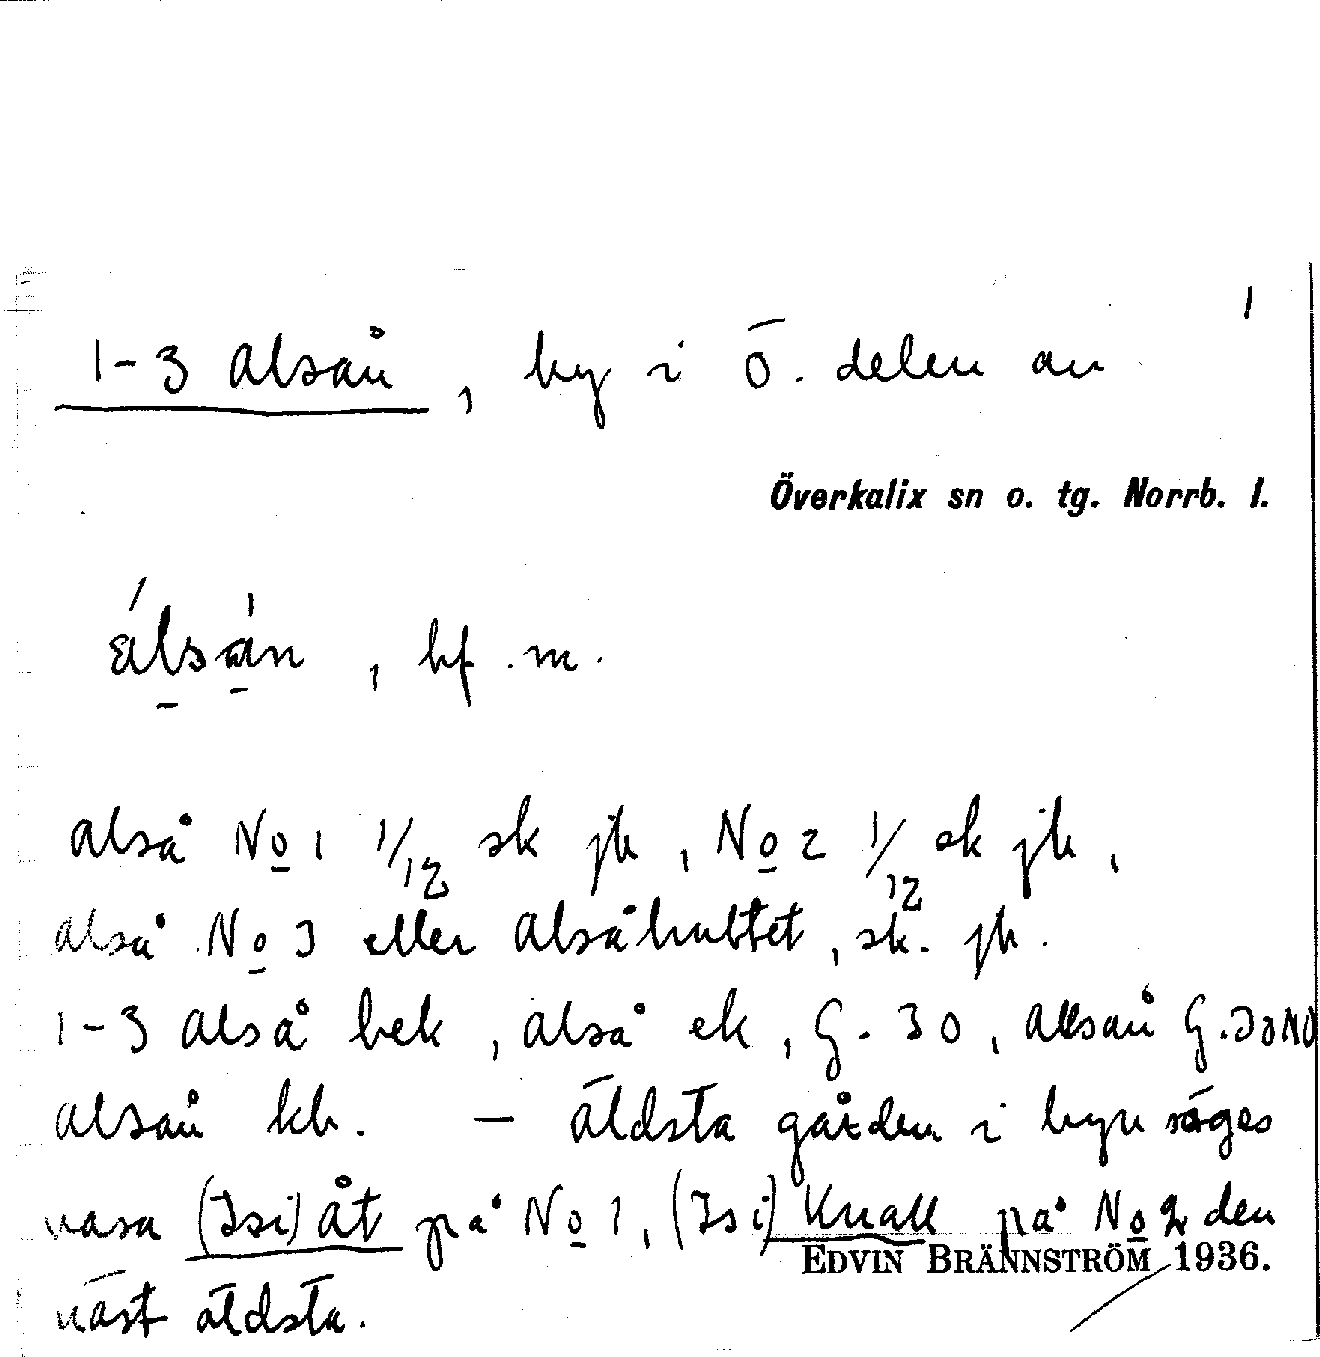 1
1-3 Alsån, by i Ö. delen av
Överkalix sn o. tg. Norrb. l.
álsán, bf. m.
Alså No 1 1/12 sk jb, No 2 1/12 ek jb,
Alså No 3 eller Alsåhuttet, sk. jb.
1-3 Alså bek, Alså ek, G. 30, Alsån G. 30 NO
Alsån kb. — Äldsta gården i byn säges
vara (Isi) åt på No 1, (Isi) Knall på No 2 den
näst äldsta.
EDVIN BRÄNNSTRÖM 1936.